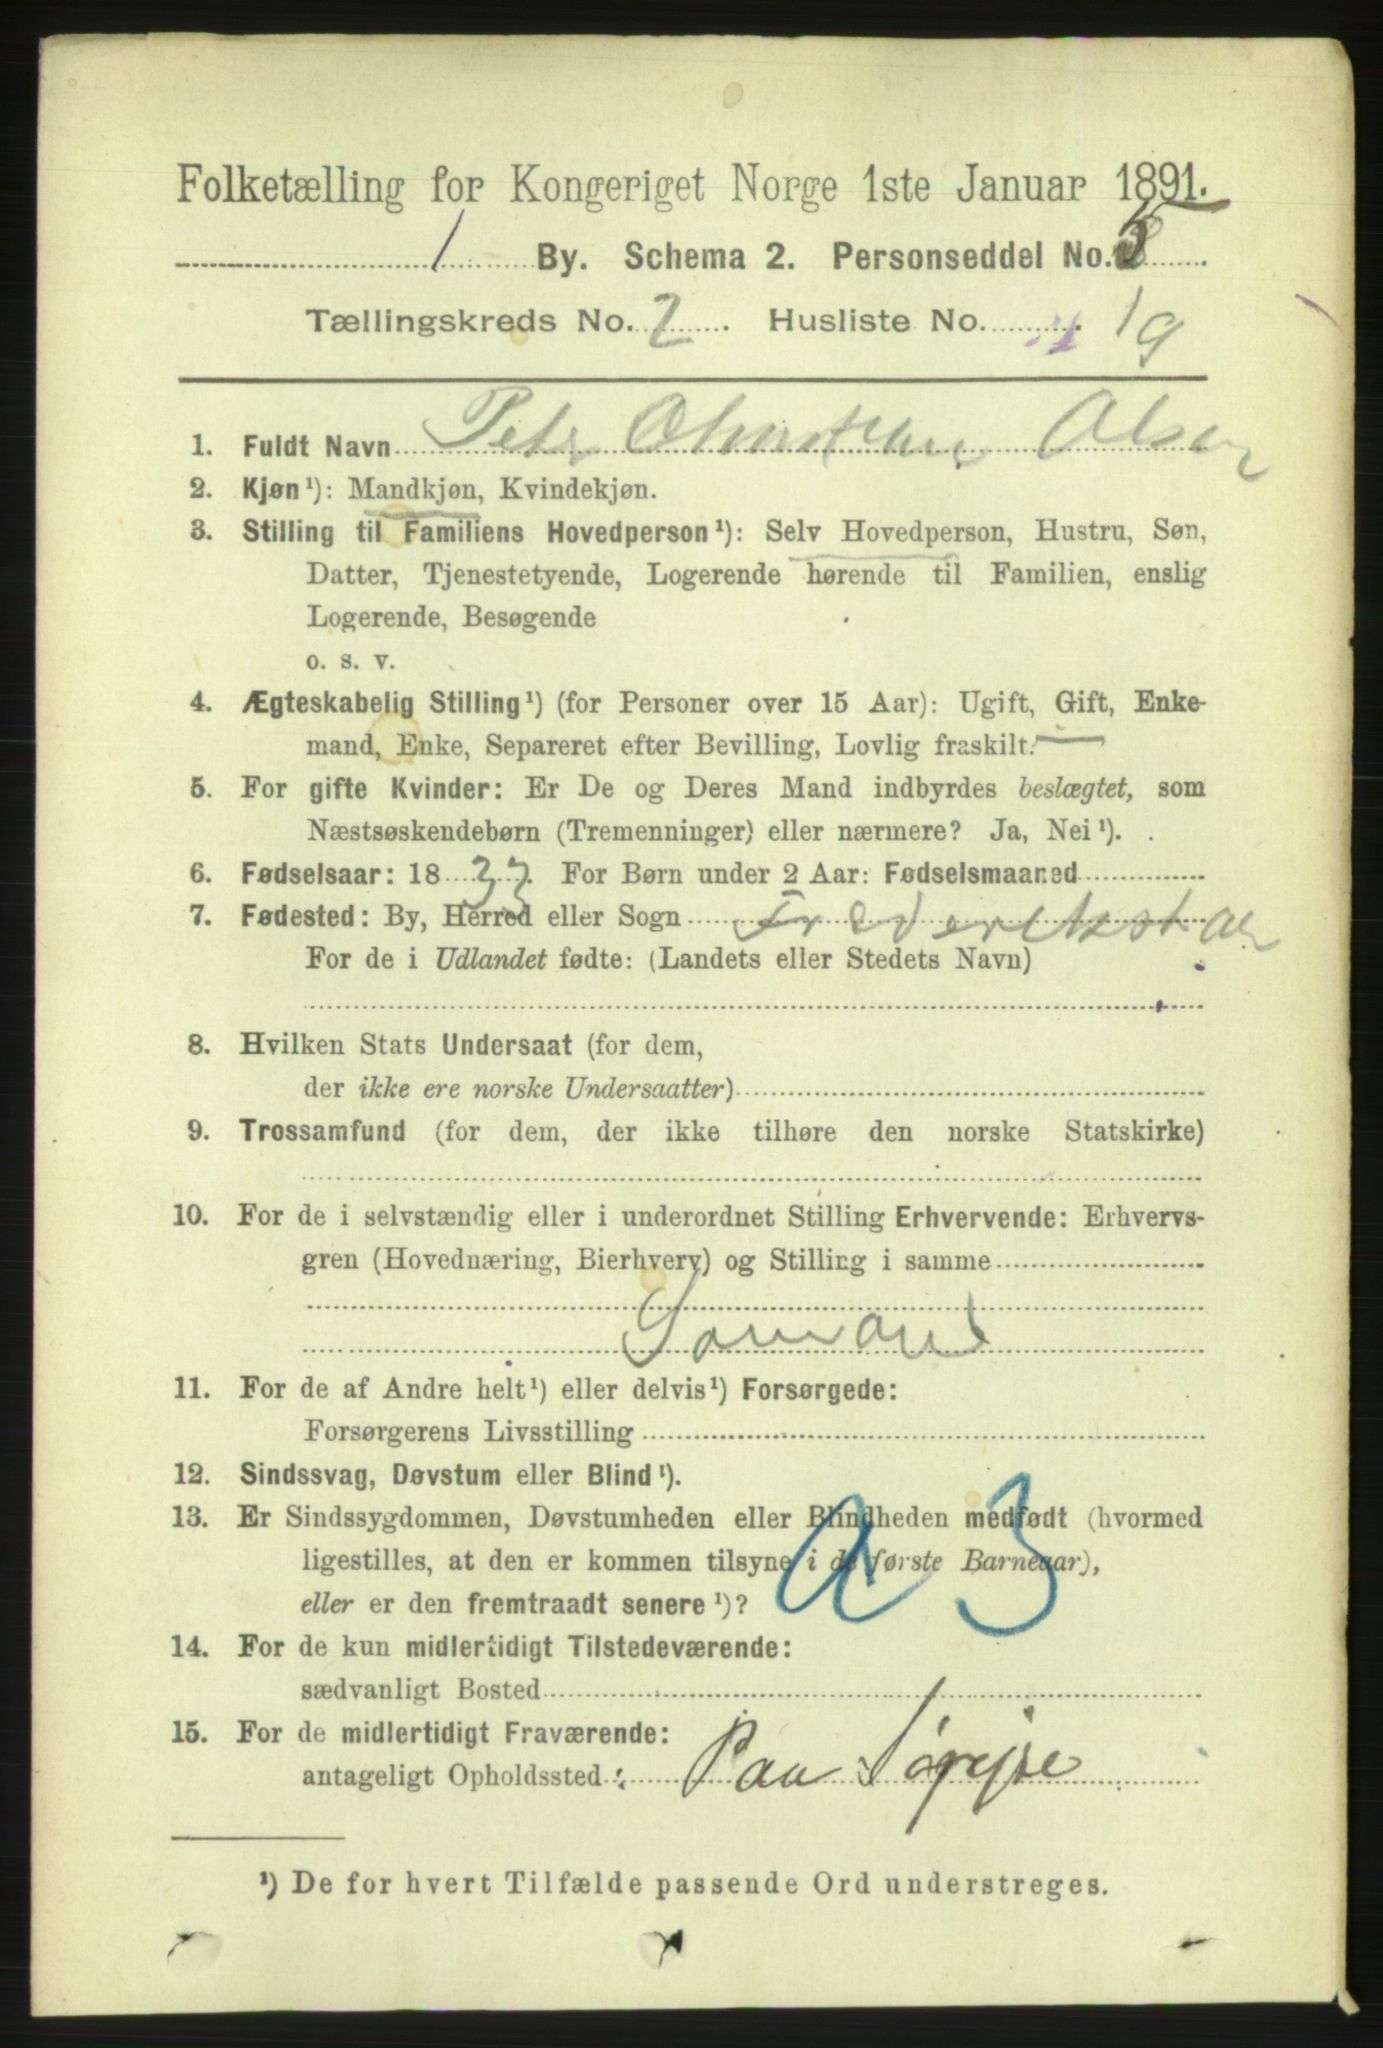 Folketælling for Kongeriget Norge 1ste Januar 1891.
1 By. Schema 2. Personseddel No. 5
Tællingskreds No. 2. Husliste No. 19
1. Fuldt Navn Peter Christian Olsen
2. Kjøn ¹): Mandkjøn, Kvindekjøn.
3. Stilling til Familiens Hovedperson ¹): Selv Hovedperson, Hustru, Søn,
Datter, Tjenestetyende, Logerende hørende til Familien, enslig
Logerende, Besøgende
o. s. v.
4. Ægteskabelig Stilling ¹) (for Personer over 15 Aar): Ugift, Gift, Enke-
mand, Enke, Separeret efter Bevilling, Lovlig fraskilt.
5. For gifte Kvinder: Er De og Deres Mand indbyrdes beslægtet, som
Næstsøskendebørn (Tremenninger) eller nærmere? Ja, Nei ¹).
6. Fødselsaar: 1833. For Børn under 2 Aar: Fødselsmaaned
7. Fødested: By, Herred eller Sogn
For de i Udlandet fødte: (Landets eller Stedets Navn)
8. Hvilken Stats Undersaat (for dem,
der ikke ere norske Undersaatter)
9. Trossamfund (for dem, der ikke tilhøre den norske Statskirke)
10. For de i selvstændig eller i underordnet Stilling Erhvervende: Erhvervs-
gren (Hovednæring, Bierhverv) og Stilling i samme
Sømand
11. For de af Andre helt ¹) eller delvis ¹) Forsørgede:
Forsørgerens Livsstilling
12. Sindssvag, Døvstum eller Blind ¹).
13. Er Sindssygdommen, Døvstumheden eller Blindheden medfødt (hvormed
ligestilles, at den er kommen tilsyne i de første Barneaar),
eller er den fremtraadt senere ¹)?
a 3
14. For de kun midlertidigt Tilstedeværende:
sædvanligt Bosted
15. For de midlertidigt Fraværende:
antageligt Opholdssted: Paa Sørejse
¹) De for hvert Tilfælde passende Ord understreges.